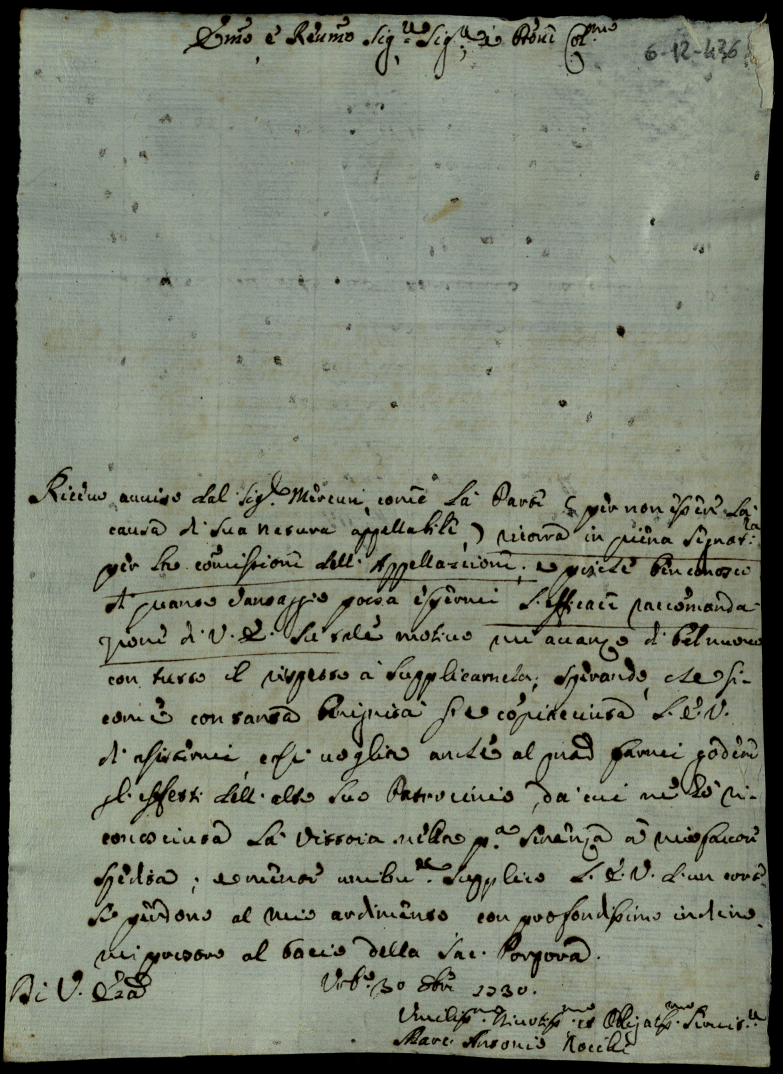 Em̃o e Reũmo Sig.re Sig.re e Prõne Col.mo
6-12-436
Riceuo auuiso dal Sig.r Mercuri, come La Parte ( per non essere La
causa di sua natura appellabile, ) ricorra in piena Signat.ra
per La com̃issione dell' Appellazione; e perche ben conosco
di quanto vantaggio possa esserci L'efficace raccomanda
zione di V. E. Su tale motivo mi auanzo di bel nuouo
con tutto il rispetto à Supplicarnela, Sperando, che si-
come con tanta benignità si è compiaciuta L. E. V.
di assistermi, così uoglia anche al pñte farmi godere
gl' effetti dell' alto Suo Patrocinio, da cui ne hò ri-
conosciuta La Vittoria nella p.a Sentenza à mio fauore
Spedita; e mentre Supplico L. E. V. d'un cortese
perdono al mio ardimento con profondissimo inchino
mi prostro al bacio della Sac. Porpora.
Di V. Eza
Urb.o 30 8bre 1730.
Umiliss.mo Diuotiss.mo et Obligatiss.mo Seruit.re
Marc' Antonio